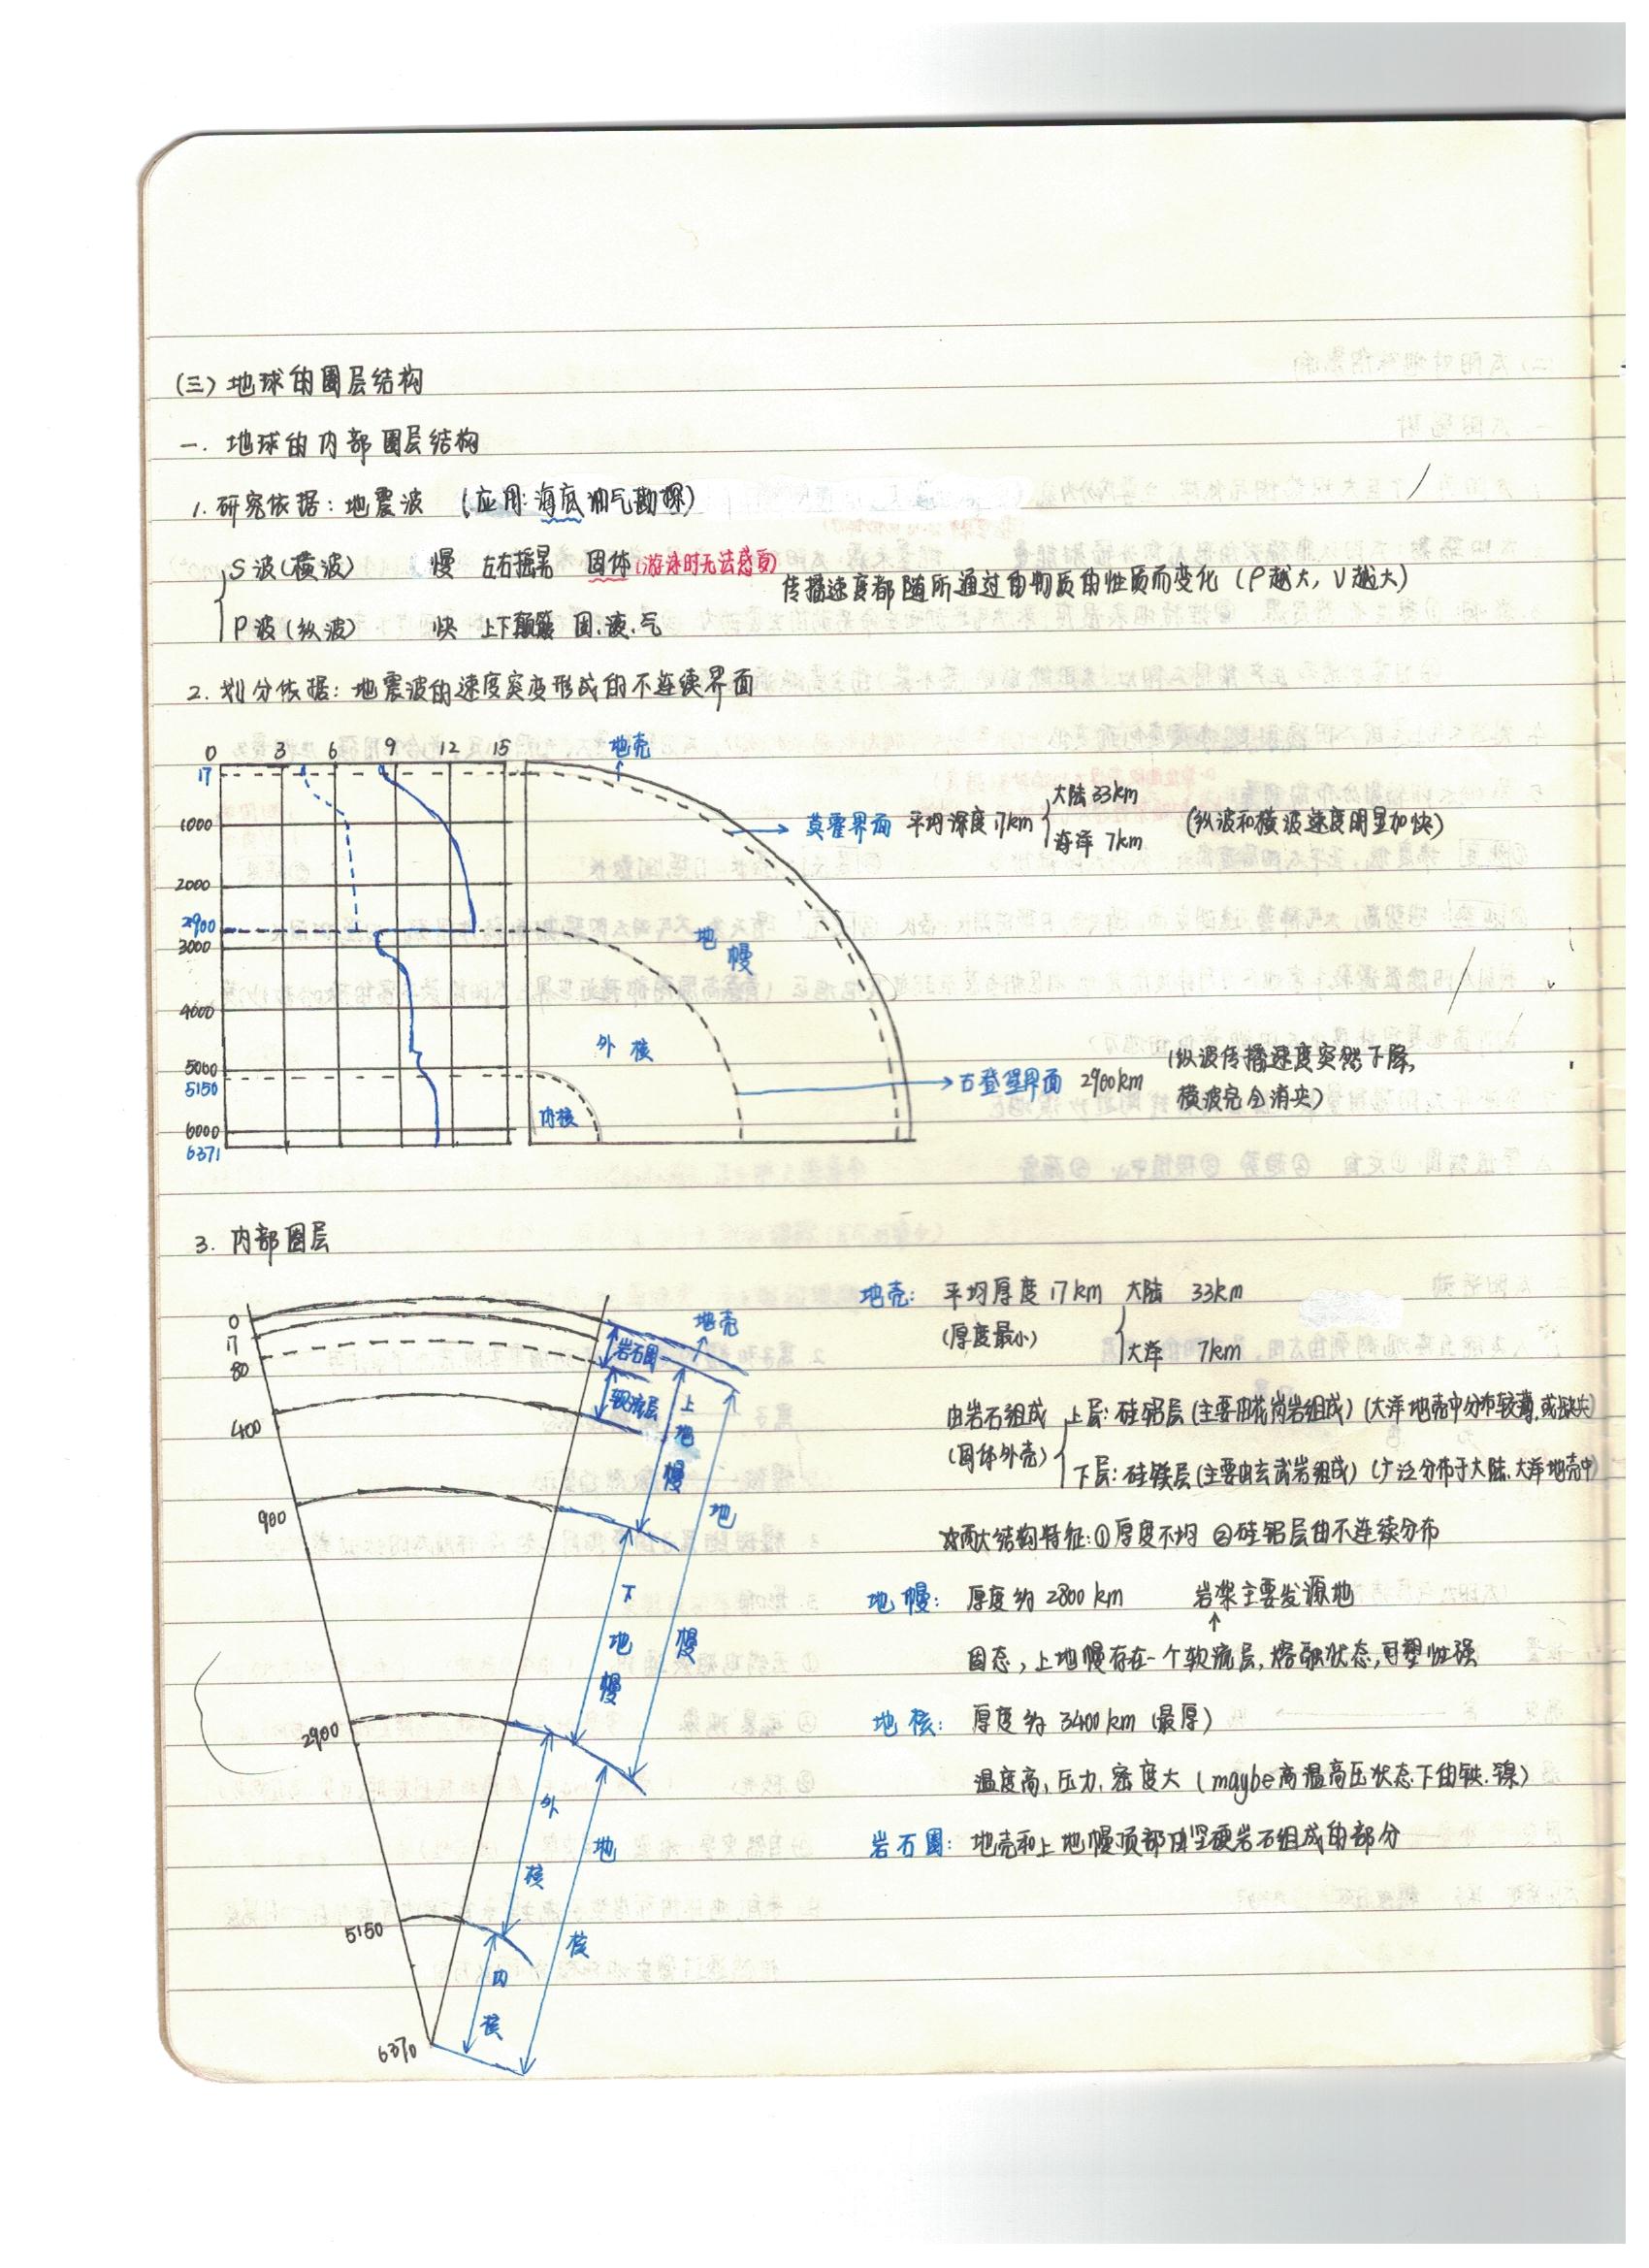 (三) 地球的圈层结构
一. 地球的内部圈层结构
1. 研究依据: 地震波 (应用: 海底油气勘探)
S波(横波) 慢 左右摇晃 固体(游泳时无法感百)
传播速度都随所通过的物质的性质而变化 (ρ越大, V越大)
P波(纵波) 快 上下颠簸 固.液.气
2. 划分依据: 地震波的速度突变形成的不连续界面
0 3 6 9 12 15 地壳
17
1000
2000
2900
3000
4000
5000
5150
6000
6371
大陆 33km
莫霍界面 平均深度17km (纵波和横波速度明显加快)
海洋 7km
地幔
外核
古登堡界面 2900km (纵波传播速度突然下降,
横波完全消失)
内核
3. 内部圈层
0
17
80
400
900
2900
5150
6370
地壳
岩石圈
软流层
上地幔
下地幔
地幔
外核
地核
内核
地壳: 平均厚度17km 大陆 33km
(厚度最小) 大洋 7km
由岩石组成 上层: 硅铝层 (主要由花岗岩组成) (大洋地壳中分布较薄,或缺失)
(固体外壳) 下层: 硅镁层 (主要由玄武岩组成) (广泛分布于大陆.大洋地壳中)
两大结构特征: ①厚度不均 ②硅铝层的不连续分布
地幔: 厚度约2800km 岩浆主要发源地
固态, 上地幔存在一个软流层, 熔融状态, 可塑性强
地核: 厚度约3400km (最厚)
温度高, 压力, 密度大 (maybe高温高压状态下的铁.镍)
岩石圈: 地壳和上地幔顶部由坚硬岩石组成的部分